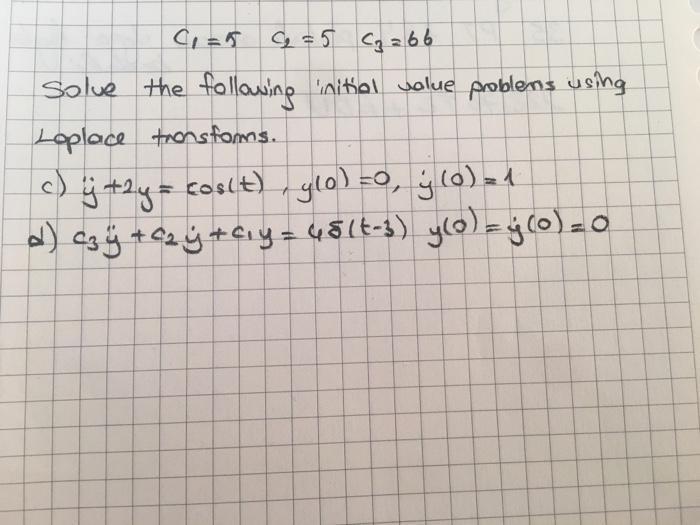 C₁ = 5 C₂ = 5 C₃ = 66
Solve the following initial value problems using
Laplace transforms.
c) ÿ + 2y = cos(t) , y(0) = 0, ẏ(0) = 1
d) C₃ÿ + C₂ẏ + C₁y = 4δ(t-3) y(0) = ẏ(0) = 0